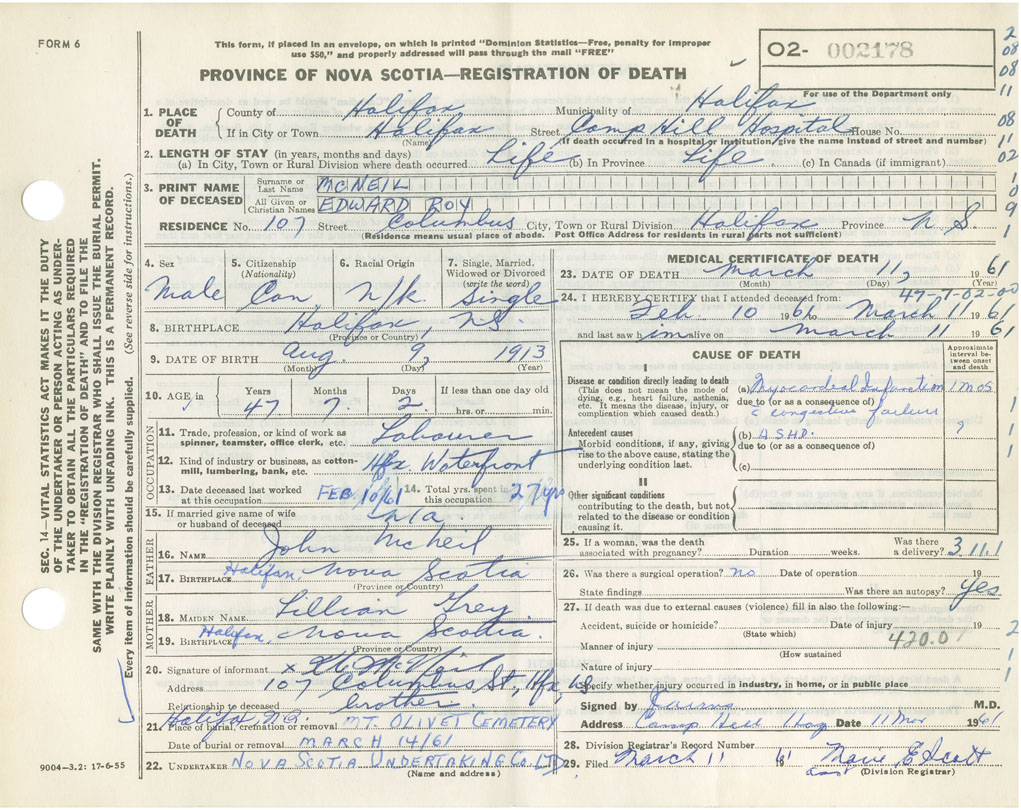 FORM 6
This form, if placed in an envelope, on which is printed "Dominion Statistics—Free, penalty for improper
use $50," and properly addressed will pass through the mail "FREE"
O2- 002178
For use of the Department only
PROVINCE OF NOVA SCOTIA—REGISTRATION OF DEATH
1. PLACE OF DEATH
County of Halifax Municipality of Halifax
If in City or Town Halifax Street Camp Hill Hospital House No.
(Name) (If death occurred in a hospital or institution, give the name instead of street and number)
2. LENGTH OF STAY (in years, months and days)
(a) In City, Town or Rural Division where death occurred Life (b) In Province Life (c) In Canada (if immigrant)
3. PRINT NAME OF DECEASED
Surname or Last Name MCNEIL
All Given or Christian Names EDWARD ROY
RESIDENCE No. 107 Street Columbus City, Town or Rural Division Halifax Province N S
(Residence means usual place of abode. Post Office Address for residents in rural parts not sufficient)
4. Sex Male
5. Citizenship (Nationality) Can,
6. Racial Origin N/K
7. Single, Married, Widowed or Divorced (write the word) Single
8. BIRTHPLACE Halifax, N.S.
(Province or Country)
9. DATE OF BIRTH Aug. 9, 1913
(Month) (Day) (Year)
10. AGE in Years 47 Months 7. Days 2. If less than one day old
hrs. or min.
OCCUPATION
11. Trade, profession, or kind of work as spinner, teamster, office clerk, etc. Labourer
12. Kind of industry or business, as cotton-mill, lumbering, bank, etc. Hfx. Waterfront
13. Date deceased last worked at this occupation FEB 10/61 14. Total yrs. spent in this occupation 27 yrs
15. If married give name of wife or husband of deceased n/a.
FATHER
16. NAME John McNeil
17. BIRTHPLACE Halifax, Nova Scotia
(Province or Country)
MOTHER
18. MAIDEN NAME Lillian Grey
19. BIRTHPLACE Halifax, Nova Scotia.
(Province or Country)
20. Signature of informant x McNeil
Address 107 Columbus St., Hfx, NS
Relationship to deceased brother.
Halifax, NS
21. Place of burial, cremation or removal MT. OLIVET CEMETERY
Date of burial or removal MARCH 14/61
22. UNDERTAKER NOVA SCOTIA UNDERTAKING CO. LTD
(Name and address)
MEDICAL CERTIFICATE OF DEATH
23. DATE OF DEATH March 11, 1961
(Month) (Day) (Year)
47-7-02-00
24. I HEREBY CERTIFY that I attended deceased from:
Feb. 10 1961 to March 11 1961
and last saw him alive on March 11 1961
CAUSE OF DEATH
Approximate interval between onset and death
I
Disease or condition directly leading to death
(This does not mean the mode of dying, e.g., heart failure, asthenia, etc. It means the disease, injury, or complication which caused death.)
(a) Myocardial Infarction 1 mos
due to (or as a consequence of)
c congestive failure
Antecedent causes
Morbid conditions, if any, giving rise to the above cause, stating the underlying condition last.
(b) A.S.H.D. ?
due to (or as a consequence of)
(c)
II
Other significant conditions
contributing to the death, but not related to the disease or condition causing it.
25. If a woman, was the death associated with pregnancy? Duration weeks. Was there a delivery? 3.11.1
26. Was there a surgical operation? No Date of operation 19
State findings Was there an autopsy? Yes
27. If death was due to external causes (violence) fill in also the following:—
Accident, suicide or homicide? Date of injury 19
(State which)
420.0
Manner of injury
(How sustained
Nature of injury
Specify whether injury occurred in industry, in home, or in public place
Signed by M.D.
Address Camp Hill Hosp Date 11 Mar 1961
28. Division Registrar's Record Number
29. Filed March 11 61 Marie E Scott
(Division Registrar)
SEC. 14—VITAL STATISTICS ACT MAKES IT THE DUTY
OF THE UNDERTAKER OR PERSON ACTING AS UNDER-
TAKER TO OBTAIN ALL THE PARTICULARS REQUIRED
IN THE "REGISTRATION OF DEATH" AND TO FILE THE
SAME WITH THE DIVISION REGISTRAR WHO SHALL ISSUE THE BURIAL PERMIT.
WRITE PLAINLY WITH UNFADING INK. THIS IS A PERMANENT RECORD.
Every item of information should be carefully supplied. (See reverse side for instructions.)
9004—3.2: 17-6-55
2
08
08
11
08
11
02
1
0
9
1
1
1
1
2
1
1